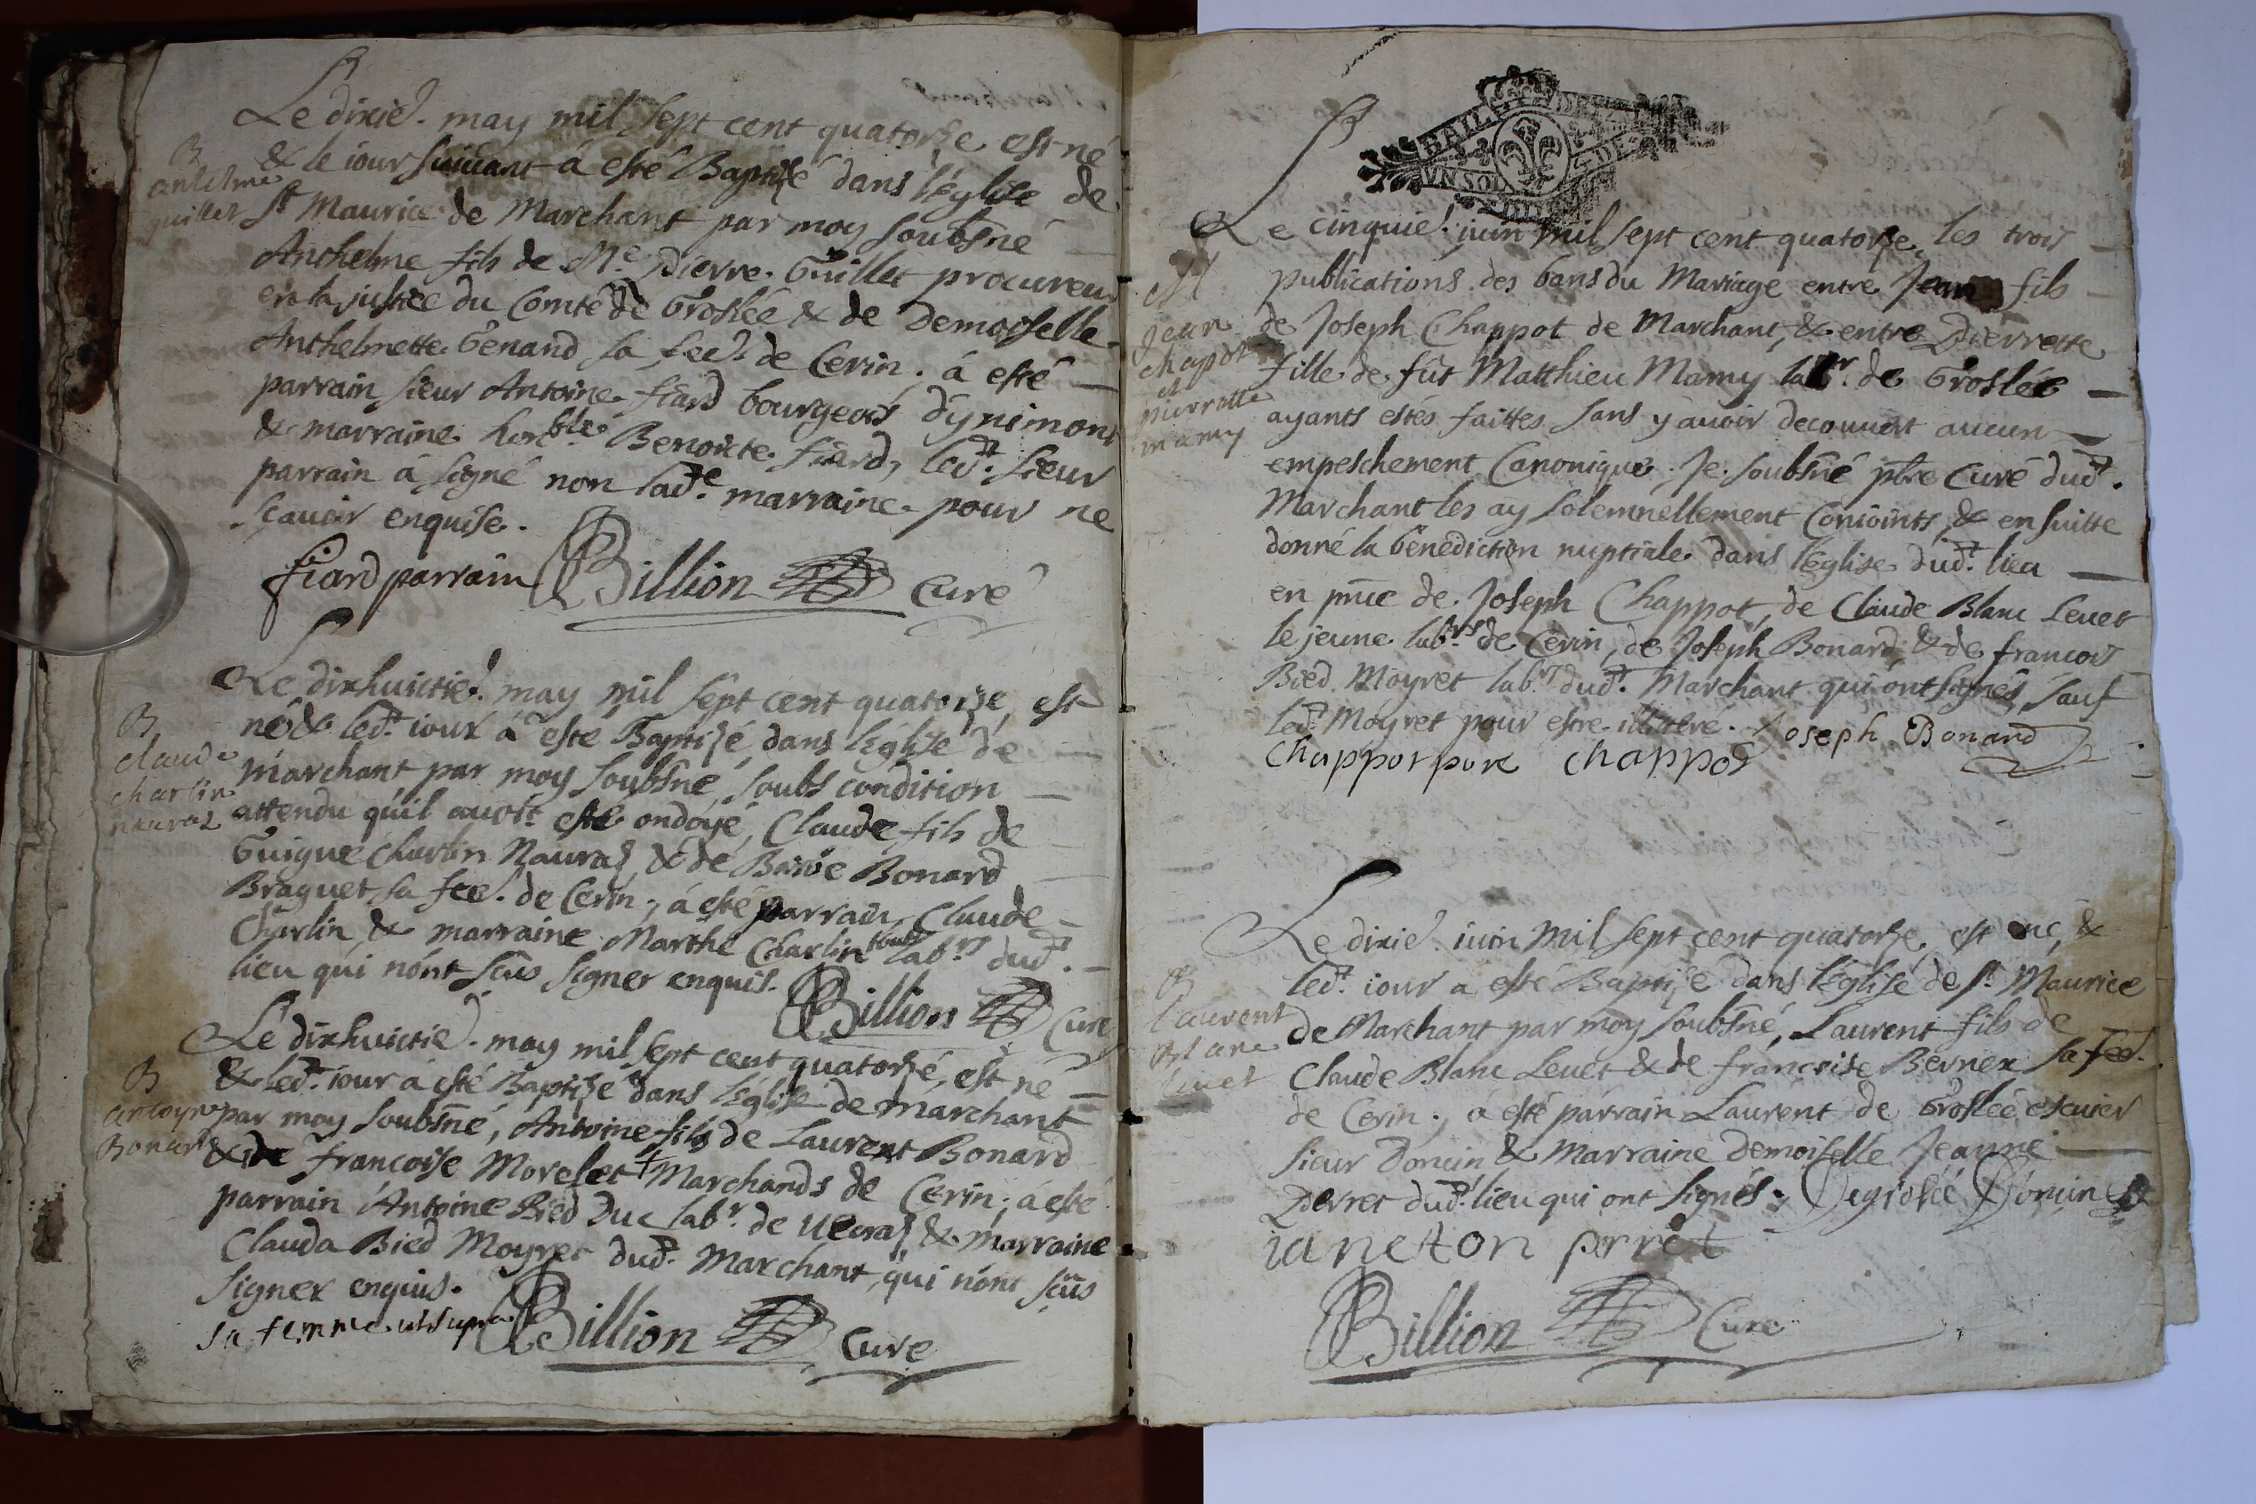 Le dixie. may mil sept cent quatorze est né
B
anthelme
guillet
& le iour suiuant a esté Baptizé dans l'église de
St Maurice de Marchant par moy soubsné
Anthelme fils de Me. Pierre Guillet procureur
en la justice du Comté de Groslée & de Demoiselle
Anthelmette Genand sa fee. de Cerin. á esté
parrain sieur Antoine fiard bourgeois d'ynimont
& marraine honble Benoicte fiard, led. sieur
parrain á signé non lade. marraine pour ne
sçauoir enquise.
fiard parrain Billion Curé
Le dixhuictie. may mil sept cent quatorze, est
B
claude
charlin
nauraz
né & led. iour á esté Baptizé dans l'église de
marchant par moy soubsné, soubs condition
attendu qu'il auoit esté ondoyé, Claude fils de
Guigue Charlin Nauraz & de Barbe Bonard
Braguet sa fee. de Cerin; á esté parrain Claude
Charlin & marraine Marthe Charlin touts labrs dud.
lieu qui n'ont sçus signer enquis. Billion Curé
Le dixhuictie. may mil sept cent quatorze, est né
B
antoyne
Bonard
& led. iour á esté Baptizé dans l'église de marchant
par moy soubsné, Antoine fils de Laurent Bonard
& de françoise Morelet + Marchands de Cerin; á esté
parrain Antoine Bied Duc labr. de & marraine
Clauda Bied Moyret dud. Marchant, qui n'ont sçus
signer enquis.
sa femme ut supra Billion Curé
BAIL DE
UN SOL DE
Le cinquie. iuin mil sept cent quatorze, les trois
M
jean
chapot
et
pierrette
mamy
publications des bans du Mariage entre Jean fils
de Joseph Chappot de Marchant, & entre Pierrette
fille de fût Matthieu Mamy labr. de Groslée
ayants estés faittes sans y auoir decouuert aucun
empeschement Canonique. Je soubsné pbre Curé dud.
Marchant les ay solemnellement Conioints, & ensuitte
donné la bénédiction nuptiale dans l'église dud. lieu
en pnce de Joseph Chappot, de Claude Blanc Leuet
le jeune labrs de Cerin, de Joseph Bonard, & de francois
Bied Moyret labrs dud. Marchant qui ont signés, sauf
led. Moyret pour estre illiteré. Joseph Bonard
Chappot pere chappot
Le dixie. iuin mil sept cent quatorze, est né, &
B
Laurent
Blanc
Leuet
led. iour a esté Baptizé dans l'église de St. Maurice
de Marchant par moy soubsné, Laurent fils de
Claude Blanc Leuet & de françoise Bernex sa fee.
de Cerin; á esté parrain Laurent de Groslée escuier
sieur Doncin & Marraine Demoiselle Jeanne
Perret dud. lieu qui ont signés. Degroslée Doncin
ianeton perret
Billion Curé